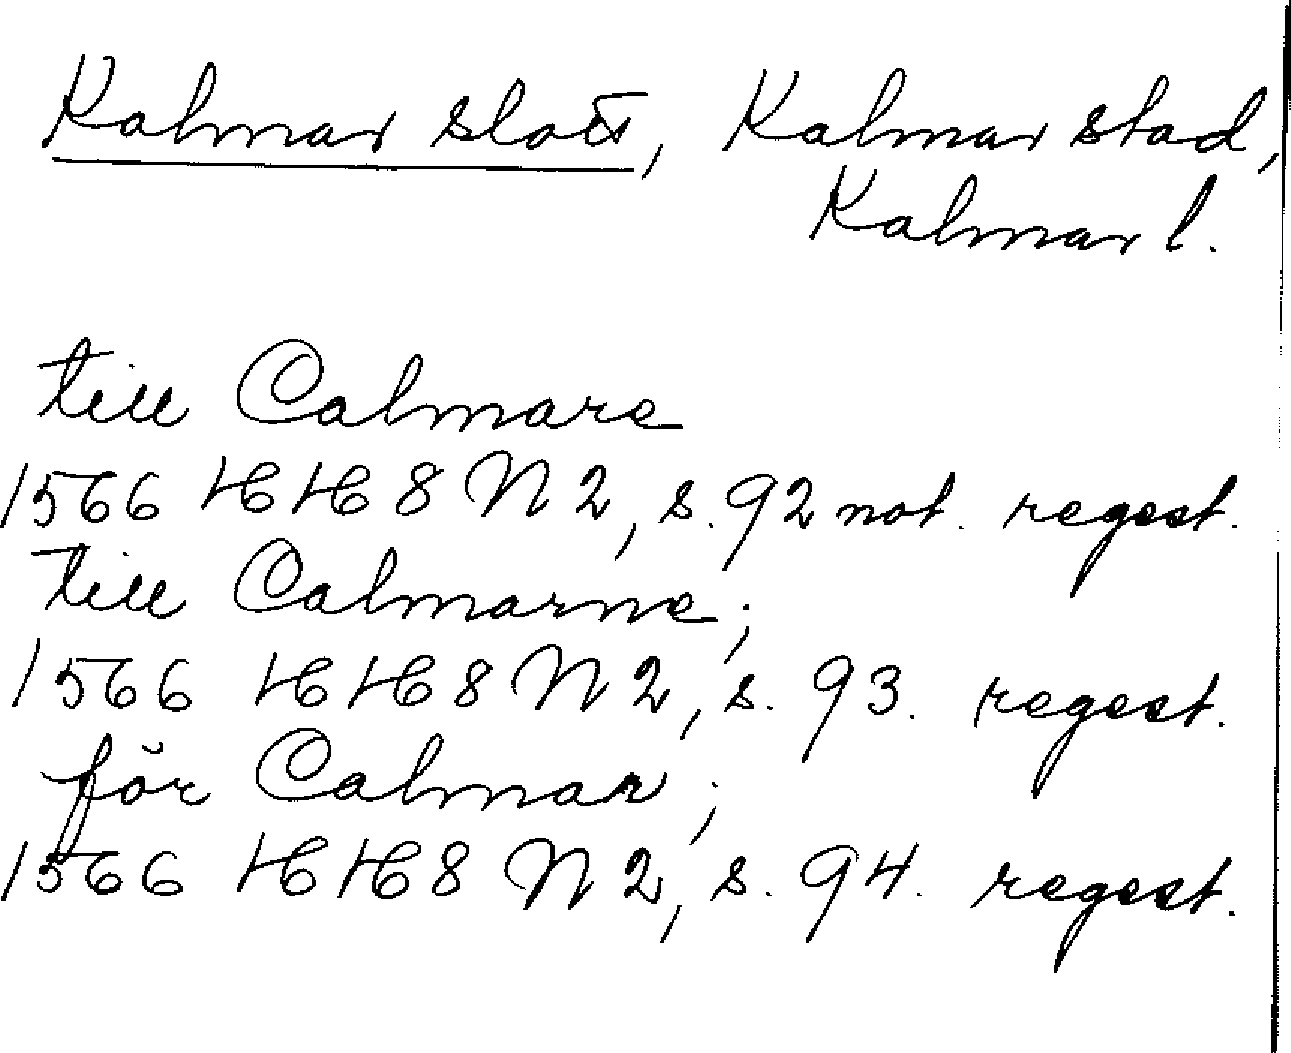 Kalmar slott, Kalmar stad,
Kalmar l.
till Calmare
1566 HH 8 N 2, s. 92 not. regest.
till Calmarne;
1566 HH 8 N 2, s. 93. regest.
för Calmar;
1566 HH 8 N 2, s. 94. regest.